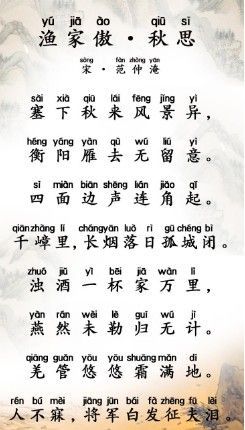 yú jiā ào qiū sī
渔家傲·秋思
sòng fàn zhòng yān
宋·范仲淹
sài xià qiū lái fēng jǐng yì
塞下秋来风景异，
héng yáng yàn qù wú liú yì
衡阳雁去无留意。
sì miàn biān shēng lián jiǎo qǐ
四面边声连角起。
qiān zhàng lǐ chángyān luò rì gū chéng bì
千嶂里，长烟落日孤城闭。
zhuó jiǔ yì bēi jiā wàn lǐ
浊酒一杯家万里，
yàn rán wèi lè guī wú jì
燕然未勒归无计。
qiāng guǎn yōu yōu shuāng mǎn dì
羌管悠悠霜满地。
rén bú mèi jiāng jūn bái fà zhēng fū lèi
人不寐，将军白发征夫泪。